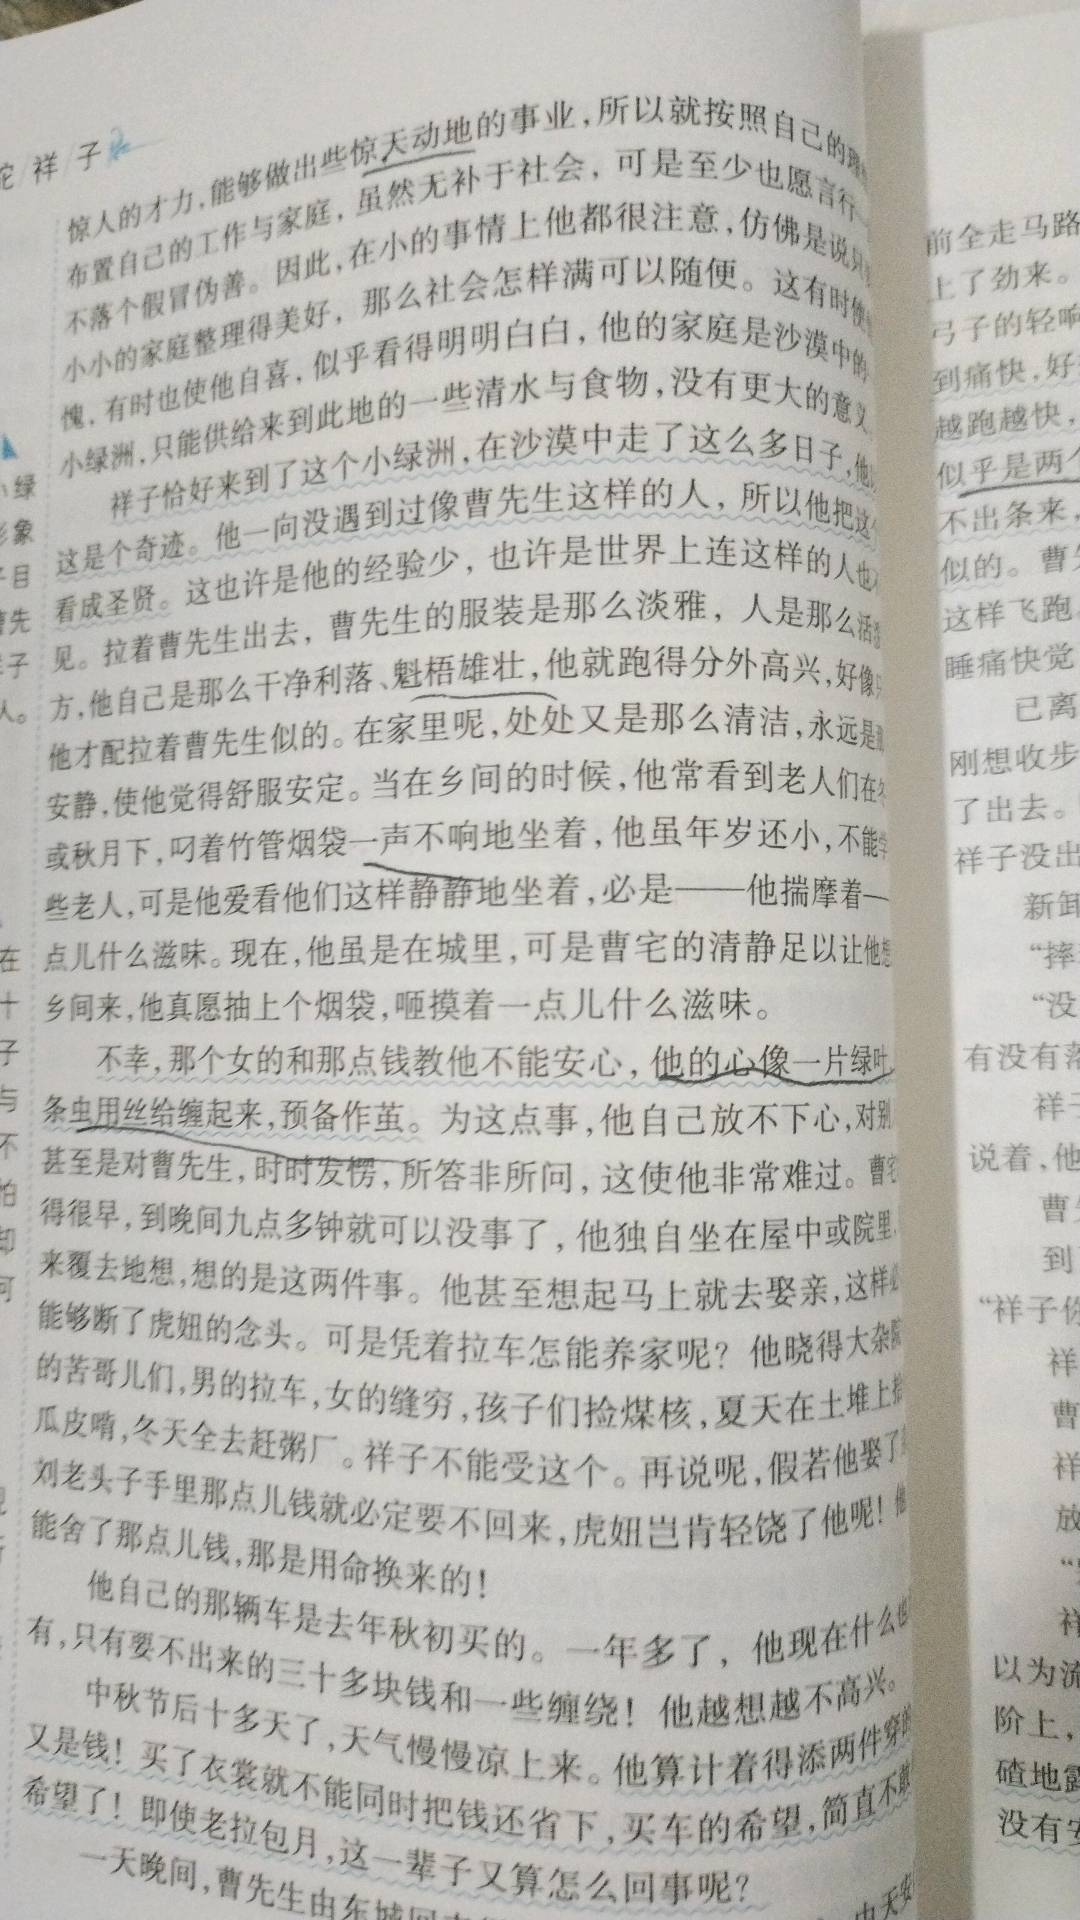 驼/祥/子
惊人的才力,能够做出些惊天动地的事业,所以就按照自己的理
布置自己的工作与家庭，虽然无补于社会，可是至少也愿言行
不落个假冒伪善。因此,在小的事情上他都很注意,仿佛是说只
小小的家庭整理得美好，那么社会怎样满可以随便。这有时使
愧,有时也使他自喜,似乎看得明明白白,他的家庭是沙漠中的
小绿洲,只能供给来到此地的一些清水与食物,没有更大的意义
祥子恰好来到了这个小绿洲,在沙漠中走了这么多日子,他
这是个奇迹。他一向没遇到过像曹先生这样的人，所以他把这
看成圣贤。这也许是他的经验少，也许是世界上连这样的人也
见。拉着曹先生出去，曹先生的服装是那么淡雅，人是那么活
方,他自己是那么干净利落、魁梧雄壮,他就跑得分外高兴,好像
他才配拉着曹先生似的。在家里呢,处处又是那么清洁,永远是
安静,使他觉得舒服安定。当在乡间的时候,他常看到老人们在冬
或秋月下,叼着竹管烟袋一声不响地坐着,他虽年岁还小,不能学
些老人,可是他爱看他们这样静静地坐着,必是——他揣摩着—
点儿什么滋味。现在,他虽是在城里,可是曹宅的清静足以让他想
乡间来,他真愿抽上个烟袋,咂摸着一点儿什么滋味。
不幸,那个女的和那点钱教他不能安心,他的心像一片绿叶
条虫用丝给缠起来,预备作茧。为这点事,他自己放不下心,对别
甚至是对曹先生,时时发愣,所答非所问，这使他非常难过。曹宅
得很早,到晚间九点多钟就可以没事了,他独自坐在屋中或院里
来覆去地想,想的是这两件事。他甚至想起马上就去娶亲,这样必
能够断了虎妞的念头。可是凭着拉车怎能养家呢？他晓得大杂院
的苦哥儿们,男的拉车,女的缝穷,孩子们捡煤核,夏天在土堆上拾
瓜皮啃,冬天全去赶粥厂。祥子不能受这个。再说呢,假若他娶了
刘老头子手里那点儿钱就必定要不回来,虎妞岂肯轻饶了他呢！他
能舍了那点儿钱,那是用命换来的！
他自己的那辆车是去年秋初买的。一年多了，他现在什么也
有,只有要不出来的三十多块钱和一些缠绕！他越想越不高兴。
中秋节后十多天了,天气慢慢凉上来。他算计着得添两件穿的
又是钱！买了衣裳就不能同时把钱还省下,买车的希望,简直不敢
希望了！即使老拉包月,这一辈子又算怎么回事呢？
一天晚间,曹先生由东城回
小绿
形象
子目
曹先
祥子
人。
在
十
子
与
不
怕
却
何
前全走马路
上了劲来。
弓子的轻响
到痛快,好
越跑越快,
似乎是两个
不出条来,
似的。曹
这样飞跑
睡痛快觉
已离
刚想收步
了出去。
祥子没出
新卸
“摔
“没
有没有落
祥子
说着,他
曹
到
“祥子你
祥
曹
祥
放
祥
以为流
阶上,
碴地露
没有安